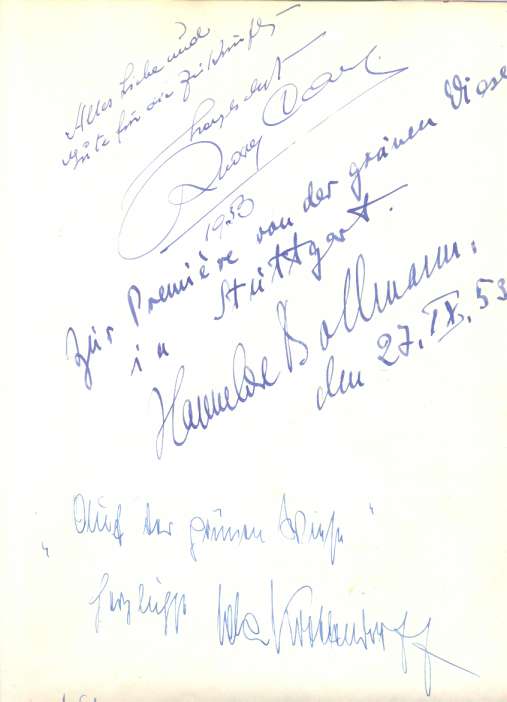 Alles Liebe und
Gute für die Zukunft
herzlichst
1953
Zur Première von der grünen Wiese
in Stuttgart.
Hannelore Bollmann.
den 27. IX. 53
"Auf der grünen Wiese"
herzlichst